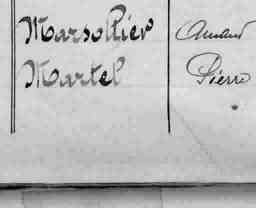 Marsollier Armand
Martel Pierre